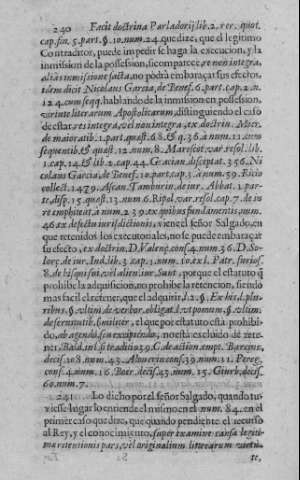 240 Facit doctrina Parladorij lib. 2. rer. quot.
cap. fin. 5. part. §. 10. num. 24. que dize, que el legitimo
Contraditor, puede impedir se haga la execucion, y la
inmission de la possession, si comparece, re non integra,
aliàs inmissione facta, no podrà embaraçar sus efectos,
idem dicit Nicolaus Garcia, de Benef. 6. part. cap. 2. n.
124. cum seqq. hablando de la inmission en possession,
virtute literarum Apostolicarum, distinguiendo el caso
de estar, res integra, vel non integra, ex
de maioratib. 1. part. quæst. 6. &. 36. à num. 11. cum
sequentib. & quæst. 12. num. 8. Marescot. var. resol. lib.
1. cap. 14. & lib. 2. cap. 44. Gracian. disceptat. 356. Ni
colaus Garcia, de Benef. 10. part. cap. 3. à num. 59. Ricio
collect. 1479. Ascan. Tamburin. de iur. Abbat. 1. par-
te, disp. 15. quæst. 13. num. 6. Ripol. var. resol. cap. 7. de iu
re emphiteit. à num. 239. ex quibus fundamentis, num.
46. ex defectu iurisdictionis, viene el señor Salgado, en
que retenidos los executoriales, no se puede embaraçar
su efecto, ex doctrin. D. Valenç. cons. 4. num. 36. D. So-
lorç. de iur. Ind. lib. 3. cap. 1. num. 10. ex l. Patr. furios.
8. de his qui sui, vel alien. iur. Sunt, porque el estatuto q̃
prohibe la adquisicion, no prohibe la retencion, siendo
mas facil el retener, que el adquirir, l. 2. §. Ex his, l. plu-
ribus. §. vltim. de verbor. obligat. l. vt pomum. §. vltim.
de seruitutib. similiter, el que por estatuto està prohibi-
do, ab agendo, sin excipiendo, no està excluìdo de rete-
ner. Bald. in l. site adito 29. C. de action. empt.
decis. 108. num. 43. cons. 39. num. 11. Pereg.
cons. 4. num. 16. Boer. decis. 45. num. 15. Giurb. decis.
60. num. 7.
241 Lo dicho por el señor Salgado, quando tu-
viesse lugar lo entiende el mismo en el num. 84. en el
primer caso que dize, que quando pendiente el recurso
al Rey, y el conocimiento, super examine causæ legiti-
mæ retentionis pars, vel originalium litterarum
te,